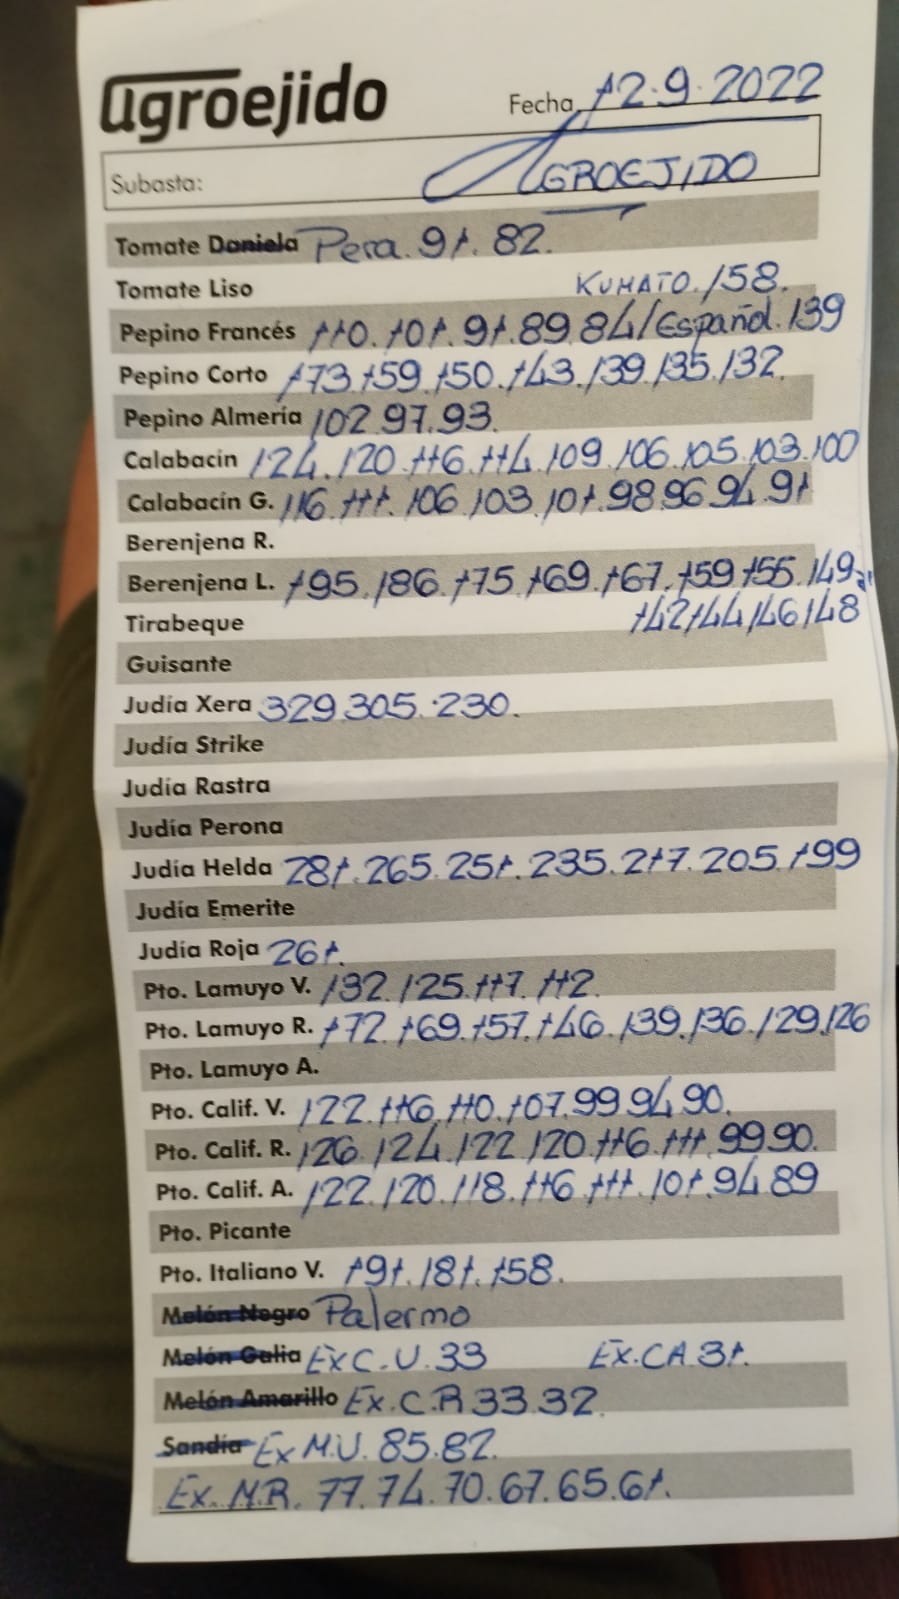 agroejido
Fecha 12.9.2022
Subasta: AGROEJIDO
Tomate Daniela Pera. 91. 82.
Tomate Liso KUMATO. 158.
Pepino Francés 110. 101. 91. 89. 84/Español. 139
Pepino Corto 173. 159. 150. 143. 139. 135. 132
Pepino Almería 102. 97. 93.
Calabacín 124. 120. 116. 114. 109. 106. 105. 103. 100
Calabacín G. 116. 111. 106. 103. 101. 98. 96. 94. 91
Berenjena R.
Berenjena L. 195. 186. 175. 169. 167. 159. 155. 149
Tirabeque 142/144/146/148
Guisante
Judía Xera 329. 305. 230.
Judía Strike
Judía Rastra
Judía Perona
Judía Helda 281. 265. 251. 235. 217. 205. 199
Judía Emerite
Judía Roja 261.
Pto. Lamuyo V. 132. 125. 117. 112.
Pto. Lamuyo R. 172. 169. 157. 146. 139. 136. 129. 126
Pto. Lamuyo A.
Pto. Calif. V. 122. 116. 110. 107. 99. 94. 90.
Pto. Calif. R. 126. 124. 122. 120. 116. 111. 99. 90.
Pto. Calif. A. 122. 120. 118. 116. 111. 101. 94. 89
Pto. Picante
Pto. Italiano V. 191. 181. 158.
Melón Negro Palermo
Melón Galia Ex C.U. 33 Ex. CA 31.
Melón Amarillo Ex. C.R 33. 32.
Sandía Ex M.U. 85. 82.
Ex. M.R. 77. 74. 70. 67. 65. 61.